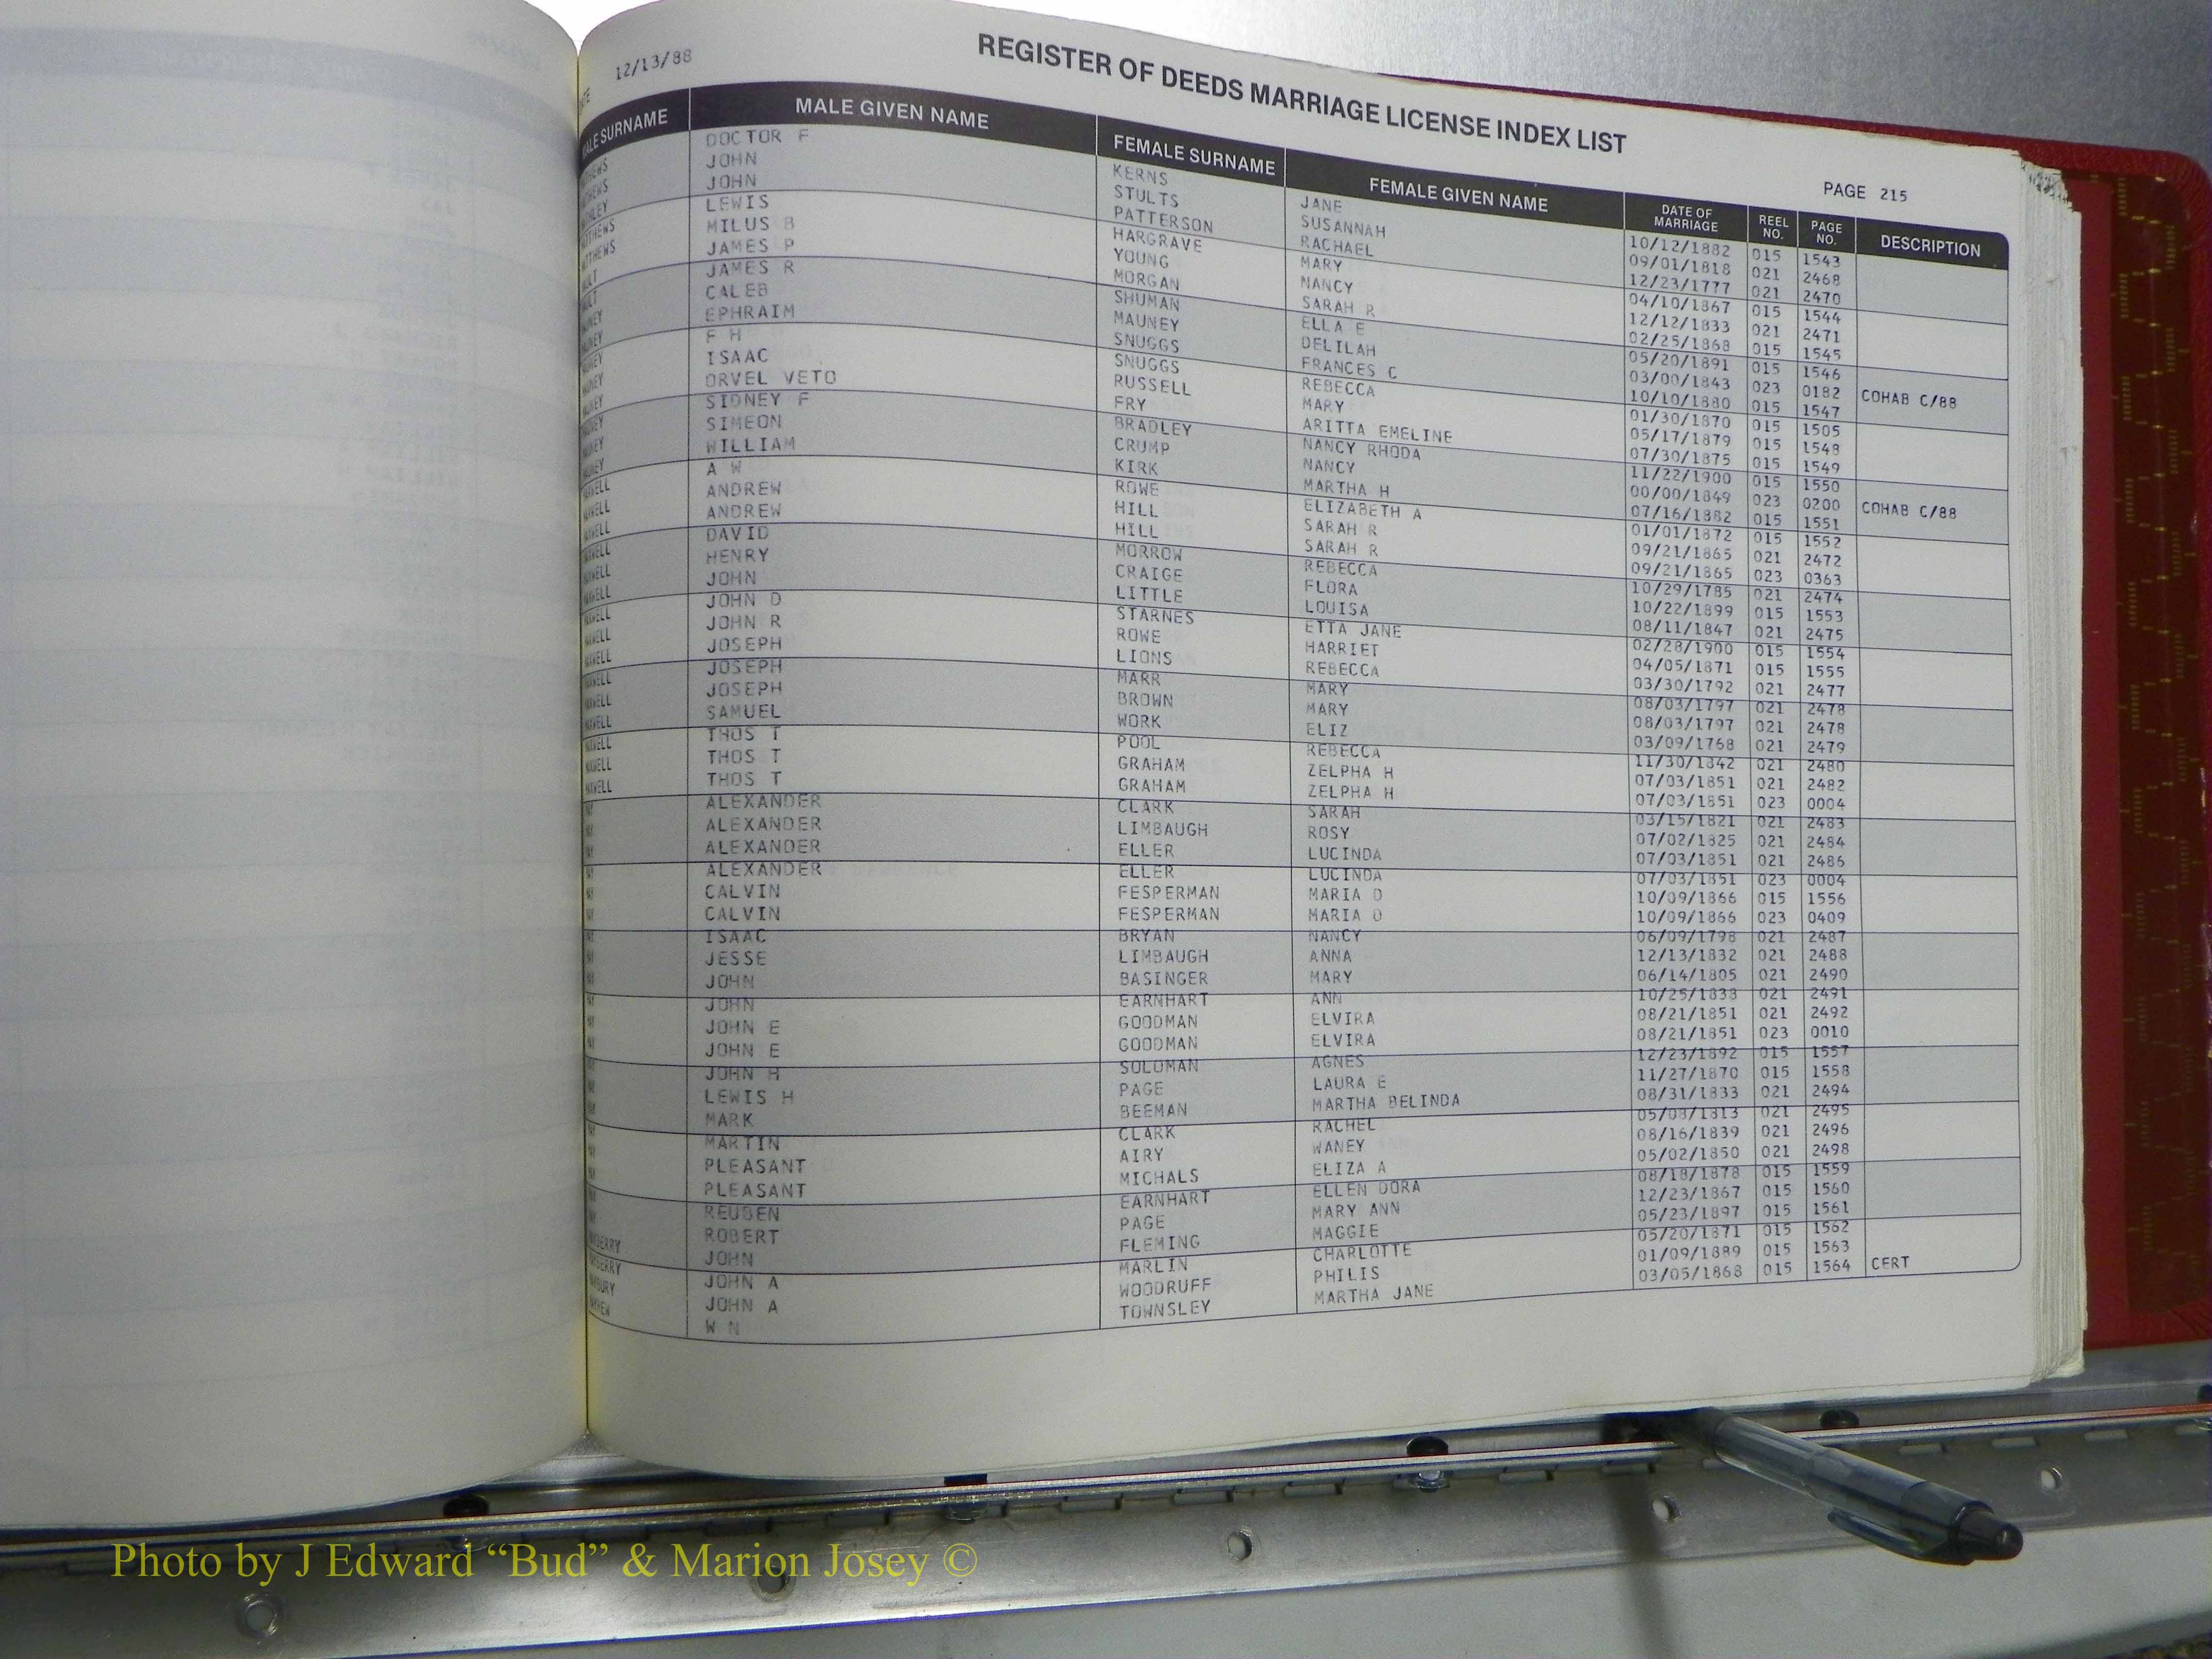 12/13/88
REGISTER OF DEEDS MARRIAGE LICENSE INDEX LIST
PAGE 215
MALE SURNAME MALE GIVEN NAME FEMALE SURNAME FEMALE GIVEN NAME DATE OF MARRIAGE REEL NO. PAGE NO. DESCRIPTION
DOCTOR F KERNS JANE 10/12/1882 015 1543
JOHN STULTS SUSANNAH 09/01/1818 021 2468
JOHN PATTERSON RACHAEL 12/23/1777 021 2470
LEWIS HARGRAVE MARY 04/10/1867 015 1544
MILUS B YOUNG NANCY 12/12/1833 021 2471
JAMES P MORGAN SARAH R 02/25/1868 015 1545
JAMES R SHUMAN ELLA E 05/20/1891 015 1546
CALEB MAUNEY DELILAH 03/00/1843 023 0182 COHAB C/88
EPHRAIM SNUGGS FRANCES C 10/10/1880 015 1547
F H SNUGGS REBECCA 01/30/1870 015 1505
ISAAC RUSSELL MARY 05/17/1879 015 1548
ORVEL VETO FRY ARITTA EMELINE 07/30/1875 015 1549
SIDNEY F BRADLEY NANCY RHODA 11/22/1900 015 1550
SIMEON CRUMP NANCY 00/00/1849 023 0200 COHAB C/88
WILLIAM KIRK MARTHA H 07/16/1882 015 1551
A W ROWE ELIZABETH A 01/01/1872 015 1552
ANDREW HILL SARAH R 09/21/1865 021 2472
ANDREW HILL SARAH R 09/21/1865 023 0363
DAVID MORROW REBECCA 10/29/1785 021 2474
HENRY CRAIGE FLORA 10/22/1899 015 1553
JOHN LITTLE LOUISA 08/11/1847 021 2475
JOHN D STARNES ETTA JANE 02/28/1900 015 1554
JOHN R ROWE HARRIET 04/05/1871 015 1555
JOSEPH LIONS REBECCA 03/30/1792 021 2477
JOSEPH MARR MARY 08/03/1797 021 2478
JOSEPH BROWN MARY 08/03/1797 021 2478
SAMUEL WORK ELIZ 03/09/1768 021 2479
THOS T POOL REBECCA 11/30/1842 021 2480
THOS T GRAHAM ZELPHA H 07/03/1851 021 2482
THOS T GRAHAM ZELPHA H 07/03/1851 023 0004
ALEXANDER CLARK SARAH 03/15/1821 021 2483
ALEXANDER LIMBAUGH ROSY 07/02/1825 021 2484
ALEXANDER ELLER LUCINDA 07/03/1851 021 2486
ALEXANDER ELLER LUCINDA 07/03/1851 023 0004
CALVIN FESPERMAN MARIA O 10/09/1866 015 1556
CALVIN FESPERMAN MARIA O 10/09/1866 023 0409
ISAAC BRYAN NANCY 06/09/1798 021 2487
JESSE LIMBAUGH ANNA 12/13/1832 021 2488
JOHN BASINGER MARY 06/14/1805 021 2490
JOHN EARNHART ANN 10/25/1838 021 2491
JOHN E GOODMAN ELVIRA 08/21/1851 021 2492
JOHN E GOODMAN ELVIRA 08/21/1851 023 0010
JOHN H SOLOMAN AGNES 12/23/1892 015 1557
LEWIS H PAGE LAURA E 11/27/1870 015 1558
MARK BEEMAN MARTHA BELINDA 08/31/1833 021 2494
MARTIN CLARK RACHEL 05/08/1813 021 2495
PLEASANT AIRY WANEY 08/16/1839 021 2496
PLEASANT MICHALS ELIZA A 05/02/1850 021 2498
REUBEN EARNHART ELLEN DORA 08/18/1878 015 1559
ROBERT PAGE MARY ANN 12/23/1867 015 1560
JOHN FLEMING MAGGIE 05/23/1897 015 1561
JOHN A MARLIN CHARLOTTE 05/20/1871 015 1562
JOHN A WOODRUFF PHILIS 01/09/1889 015 1563
W N TOWNSLEY MARTHA JANE 03/05/1868 015 1564 CERT
Photo by J Edward “Bud” & Marion Josey ©